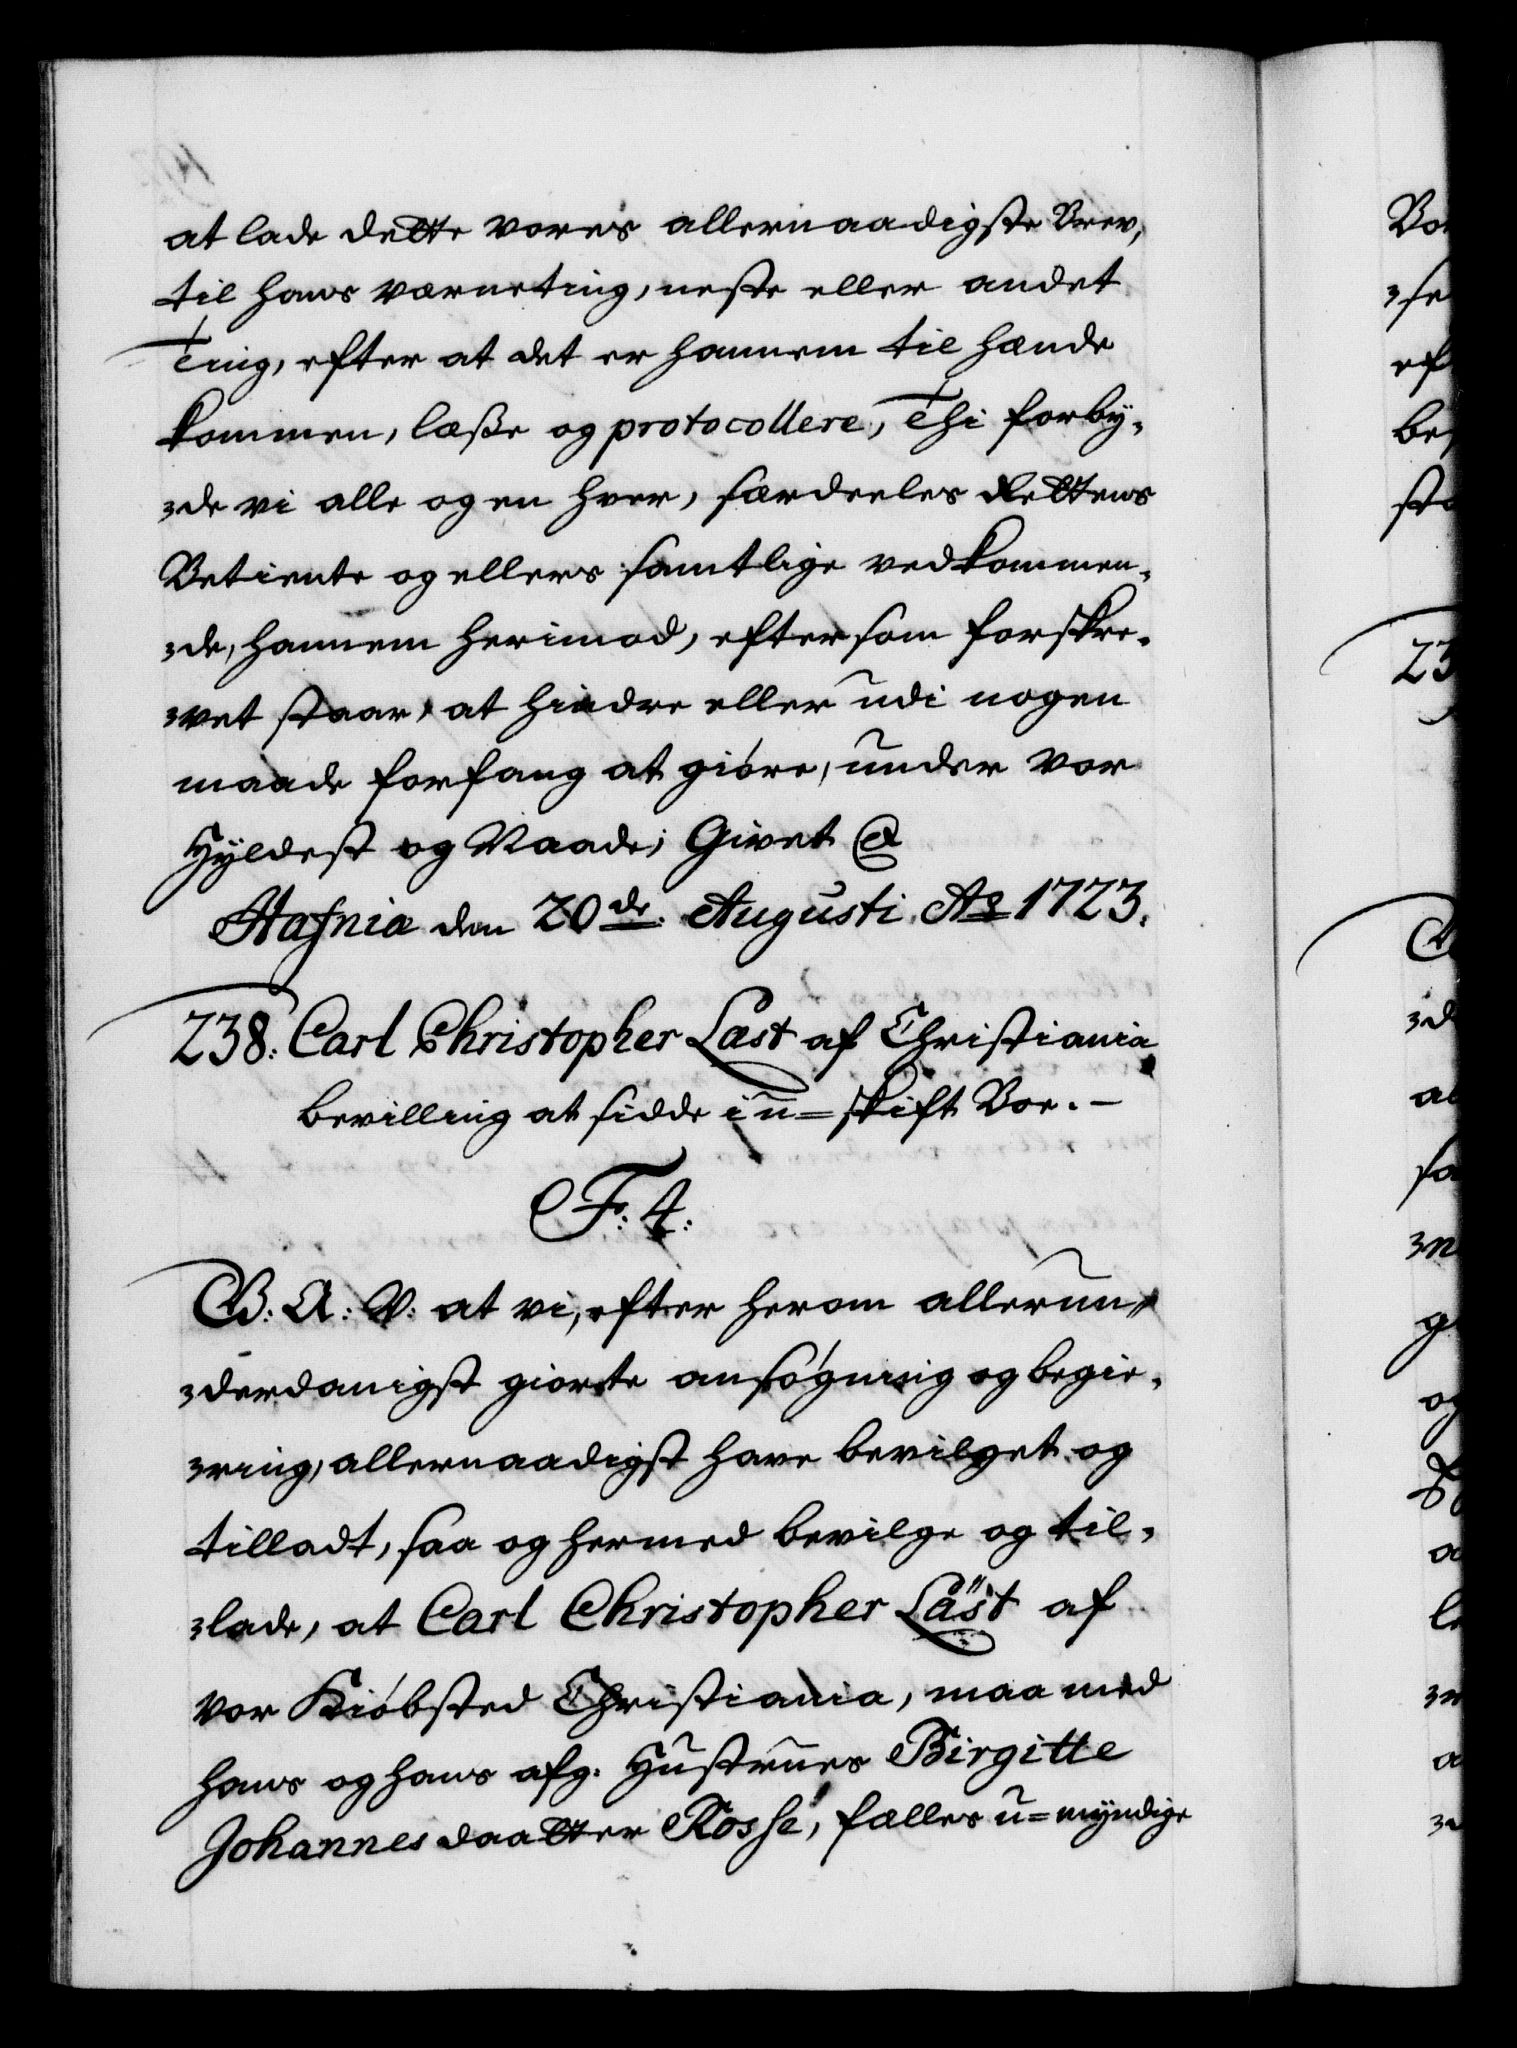 at lade dette vores allernaadigste Brev,
til hans værneting, neste eller andet
Ting, efter at det er hannem til hænde
kommen, læße og protocollere, Thi forby-
de vi alle og en hver, særdeeles Rettens
Betiente og ellers samtlige vedkommen-
de, hannem herimod, eftersom forskre-
vet staar, at hindre eller udi nogen
maade forfang at giøre, under vor
Hyldest og Naade; Givet @
Hafniæ den 20de. Augusti Ao 1723.
238. Carl Christopher Læst af Christiania
bevilling at sidde i u=skift Boe.-
F: 4:
G: A: V: at vi, efter herom allerun-
derdanigst giorte ansøgning og begie-
ring, allernaadigst have bevilget og
tilladt, saa og hermed bevilge og til-
lade, at Carl Christopher Läst af
vor Kiøbsted Christiania, maa med
hans og hans afg. Hustrues Birgitte
Johannesdaatter Rosse, fælles u=myndige